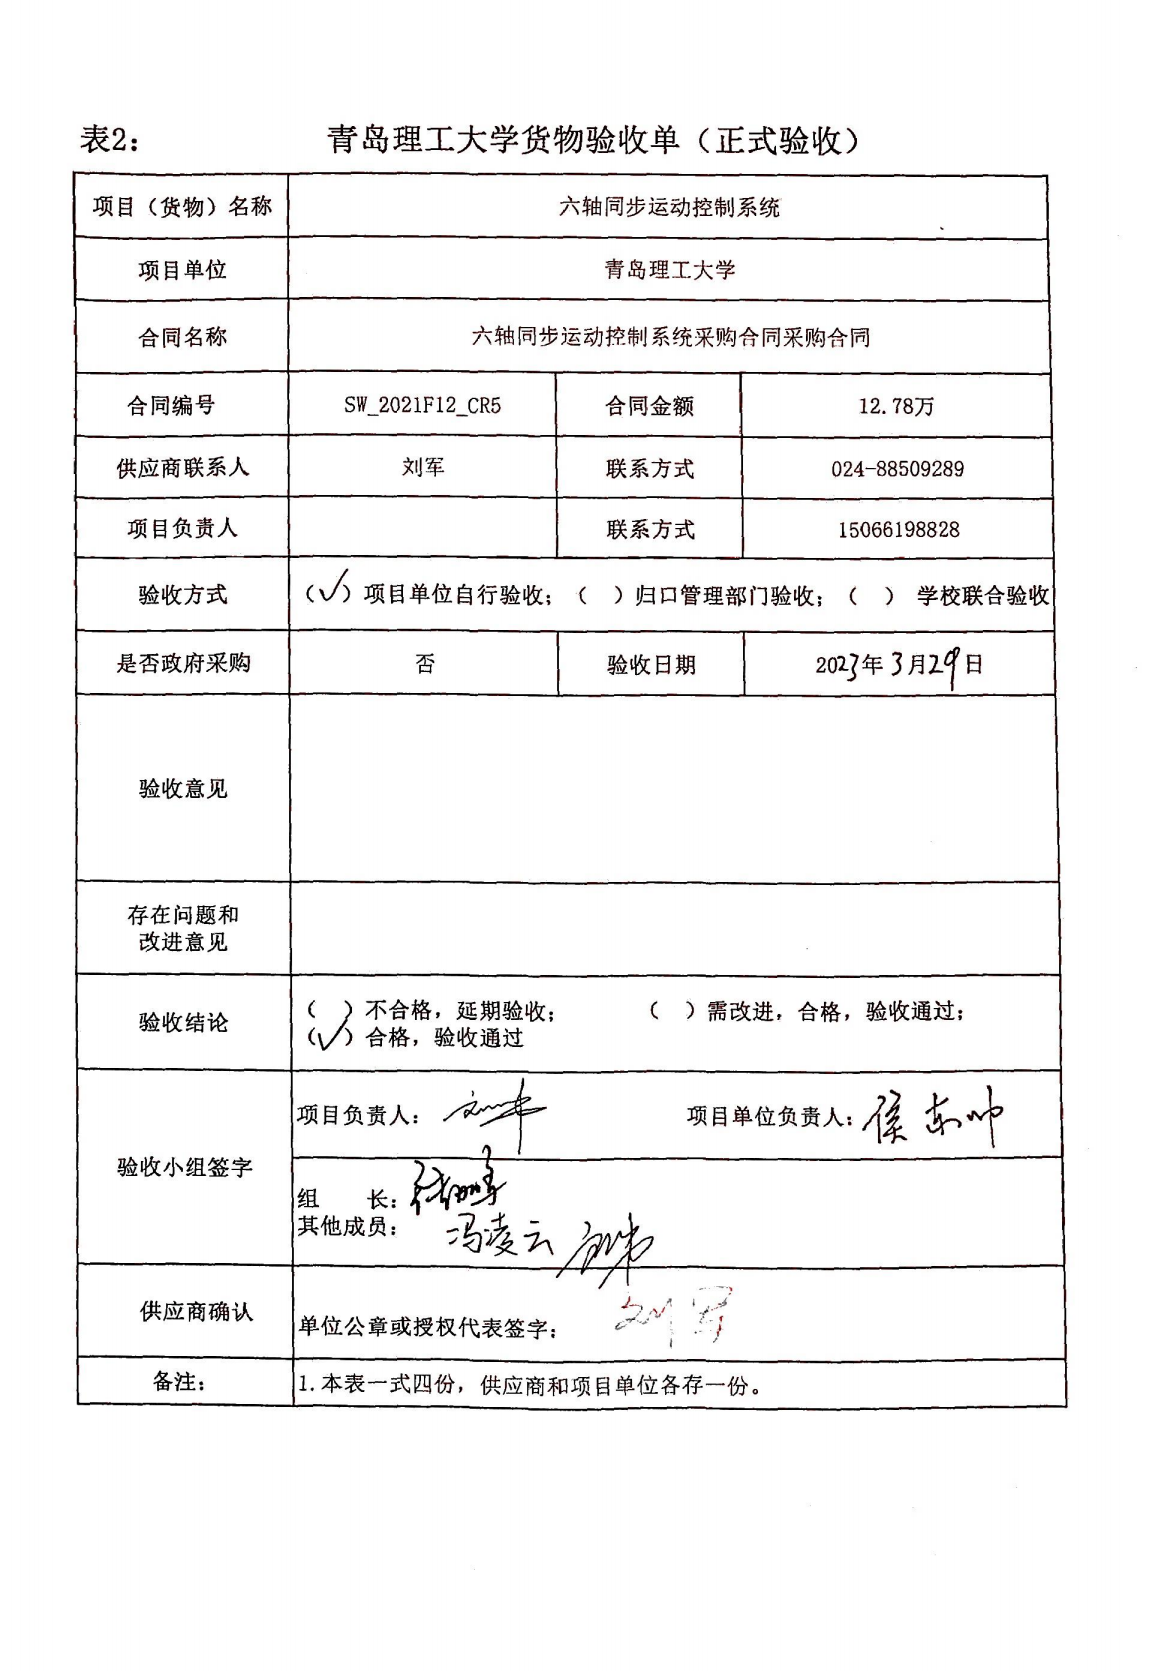 表2： 青岛理工大学货物验收单（正式验收）
项目（货物）名称 六轴同步运动控制系统
项目单位 青岛理工大学
合同名称 六轴同步运动控制系统采购合同采购合同
合同编号 SW_2021F12_CR5 合同金额 12.78万
供应商联系人 刘军 联系方式 024-88509289
项目负责人 联系方式 15066198828
验收方式 （√）项目单位自行验收；（ ）归口管理部门验收；（ ） 学校联合验收
是否政府采购 否 验收日期 2023年3月29日
验收意见
存在问题和
改进意见
验收结论 （ ）不合格，延期验收； （ ）需改进，合格，验收通过；
（√）合格，验收通过
验收小组签字 项目负责人： 项目单位负责人：
组 长：
其他成员： 冯凌云
供应商确认 单位公章或授权代表签字： 刘军
备注： 1.本表一式四份，供应商和项目单位各存一份。